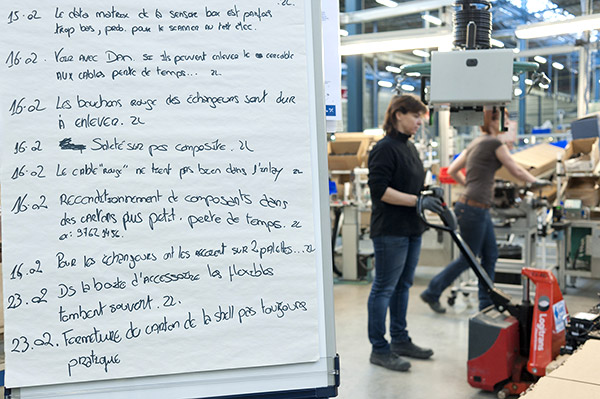 15.02 Le data matrix de la sensor box est parfois
trop bas, prob. pour le scanner au test élec. ZL
16.02 Voir avec Dam. si ils peuvent enlever le
aux cables perte de temps... ZL
16.02 Les bouchons rouge des échangeurs sont dur
à enlever. ZL
16.02 Saleté sur pas composite. ZL
16.02 Le cable "rouge" ne tient pas bien dans l'inlay ZL
16.02 Reconditionnement de composants dans
des cartons plus petit. perte de temps. ZL
ex: 9762
16.02 Pour les échangeurs ont les sur 2 palettes... ZL
23.02 Ds la boite d'accessoire les flexibles
tombent souvent. ZL.
23.02. Fermeture du carton de la shell pas toujours
pratique
Logitrans